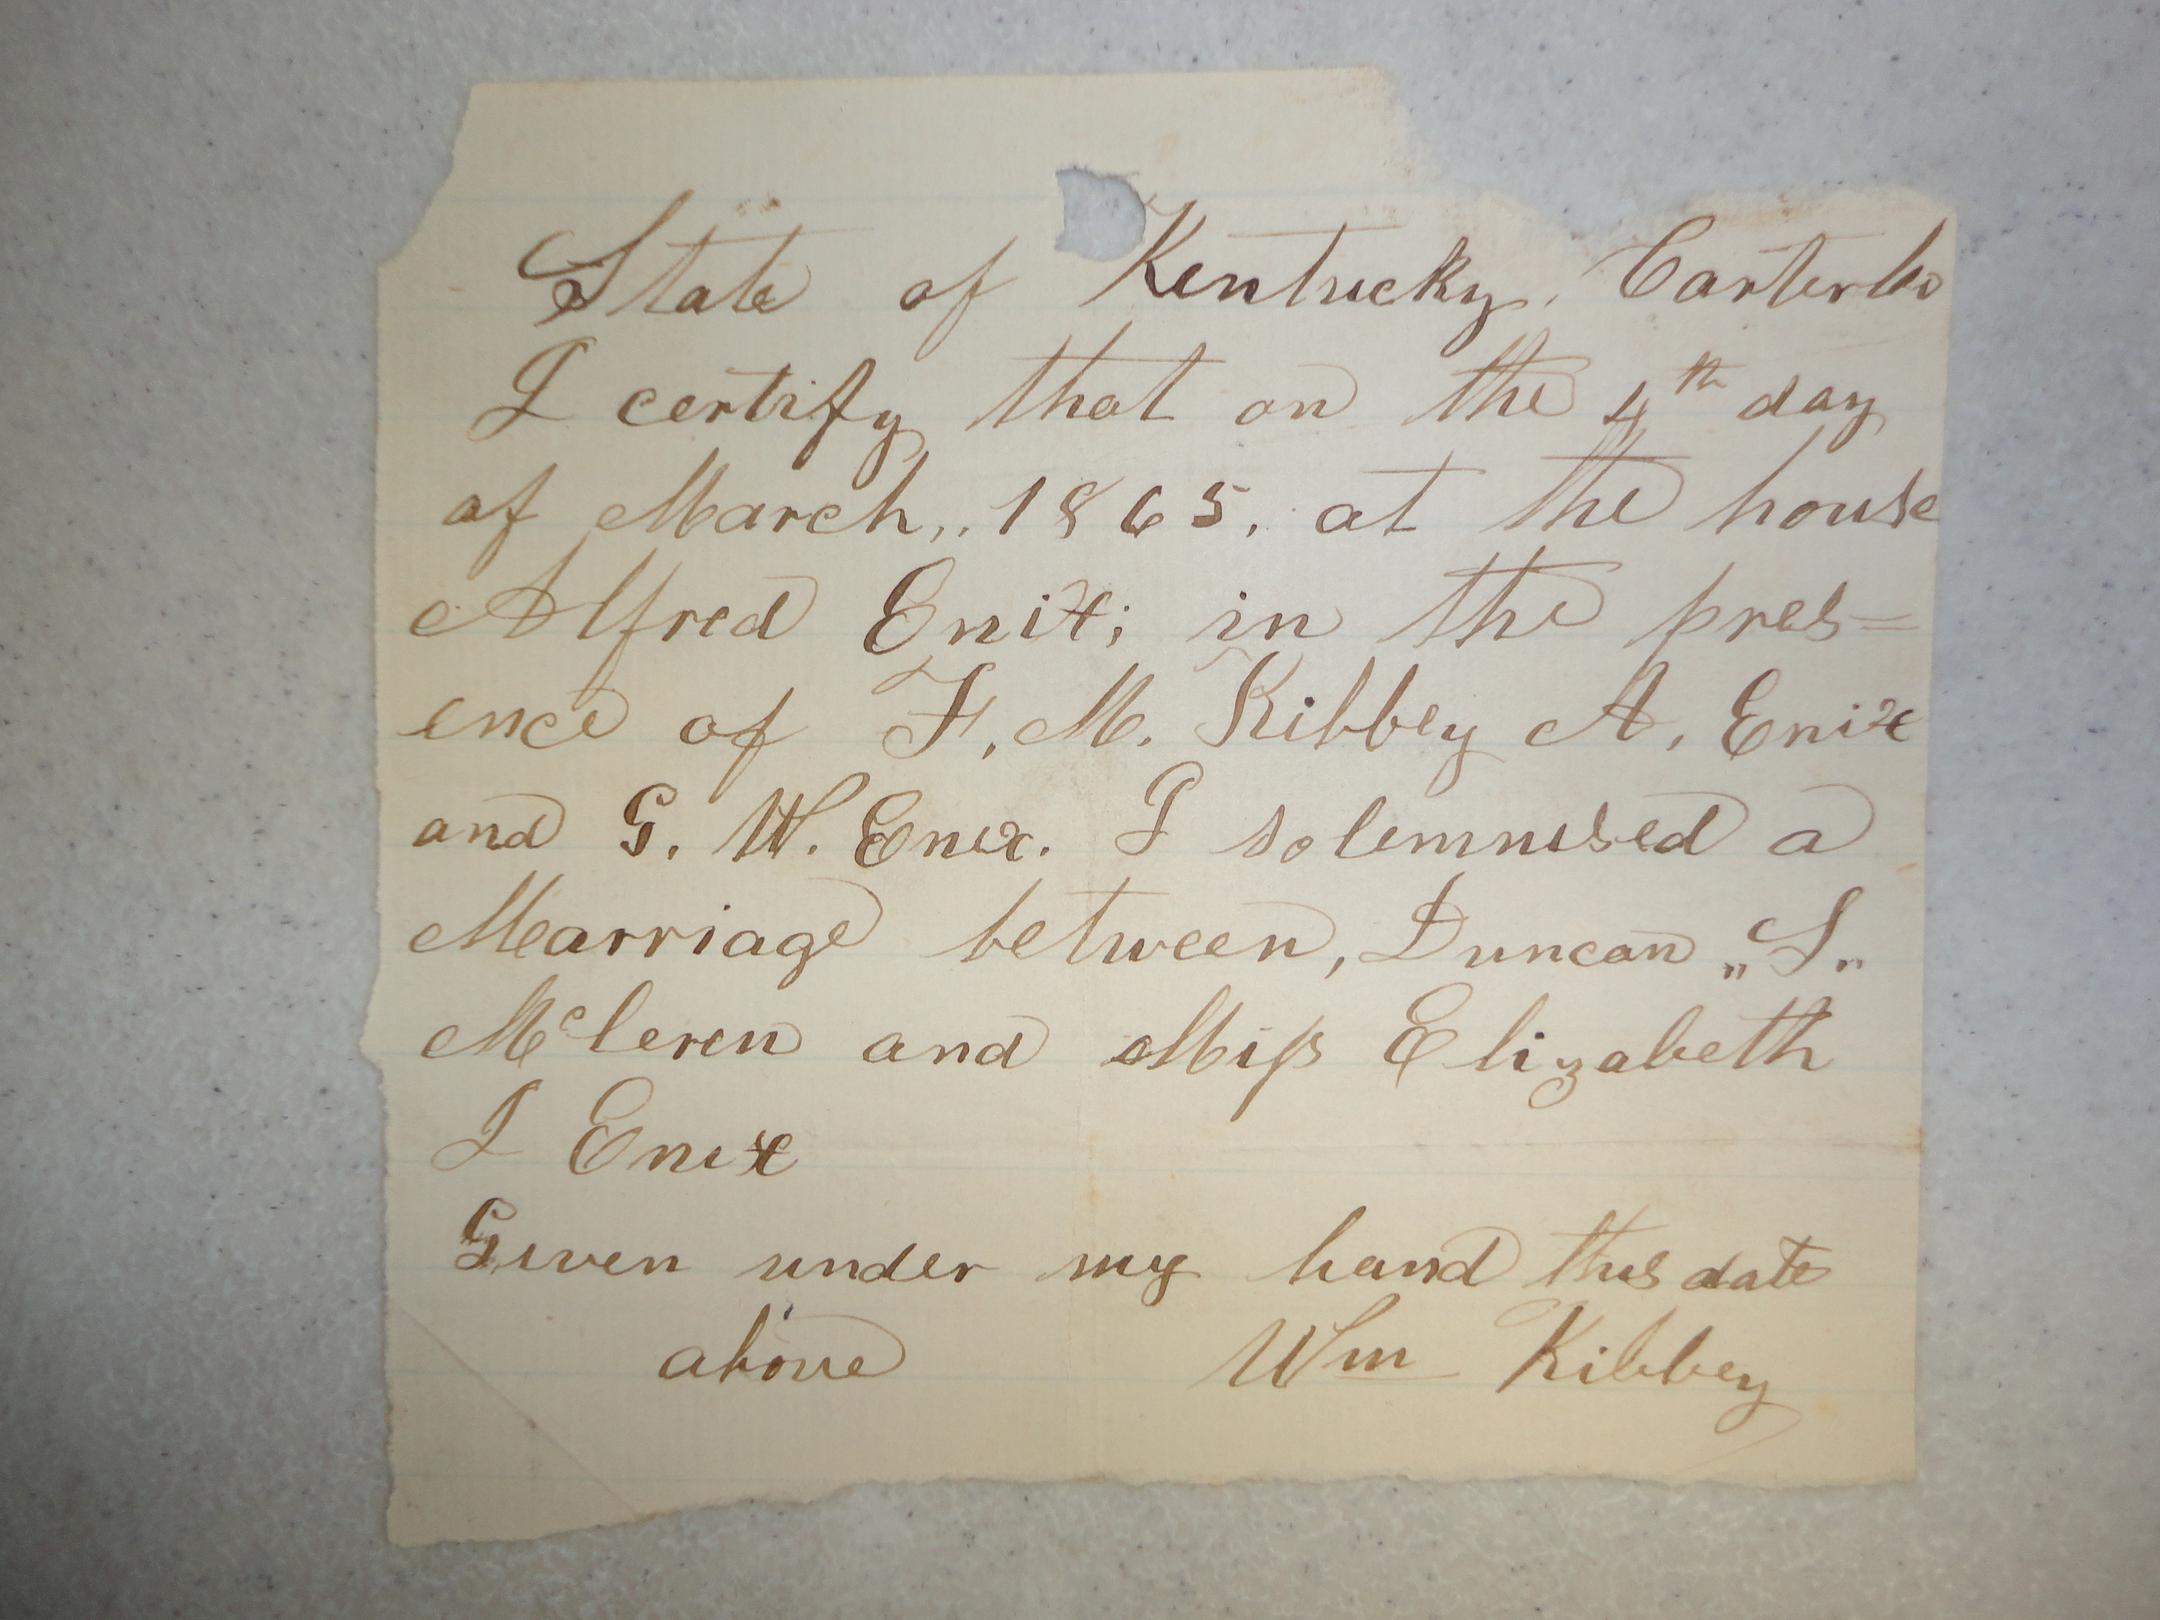 State of Kentucky, Carter Co
I certify that on the 4th day
of March,, 1865, at the house
Alfred Enix; in the pres=
ence of F. M. Kibbey A. Enix
and G. W. Enix. I solemnised a
Marriage between, Duncan „S„
Mcleren and Miss Elizabeth
I Enix
Given under my hand this date
above Wm Kibbey